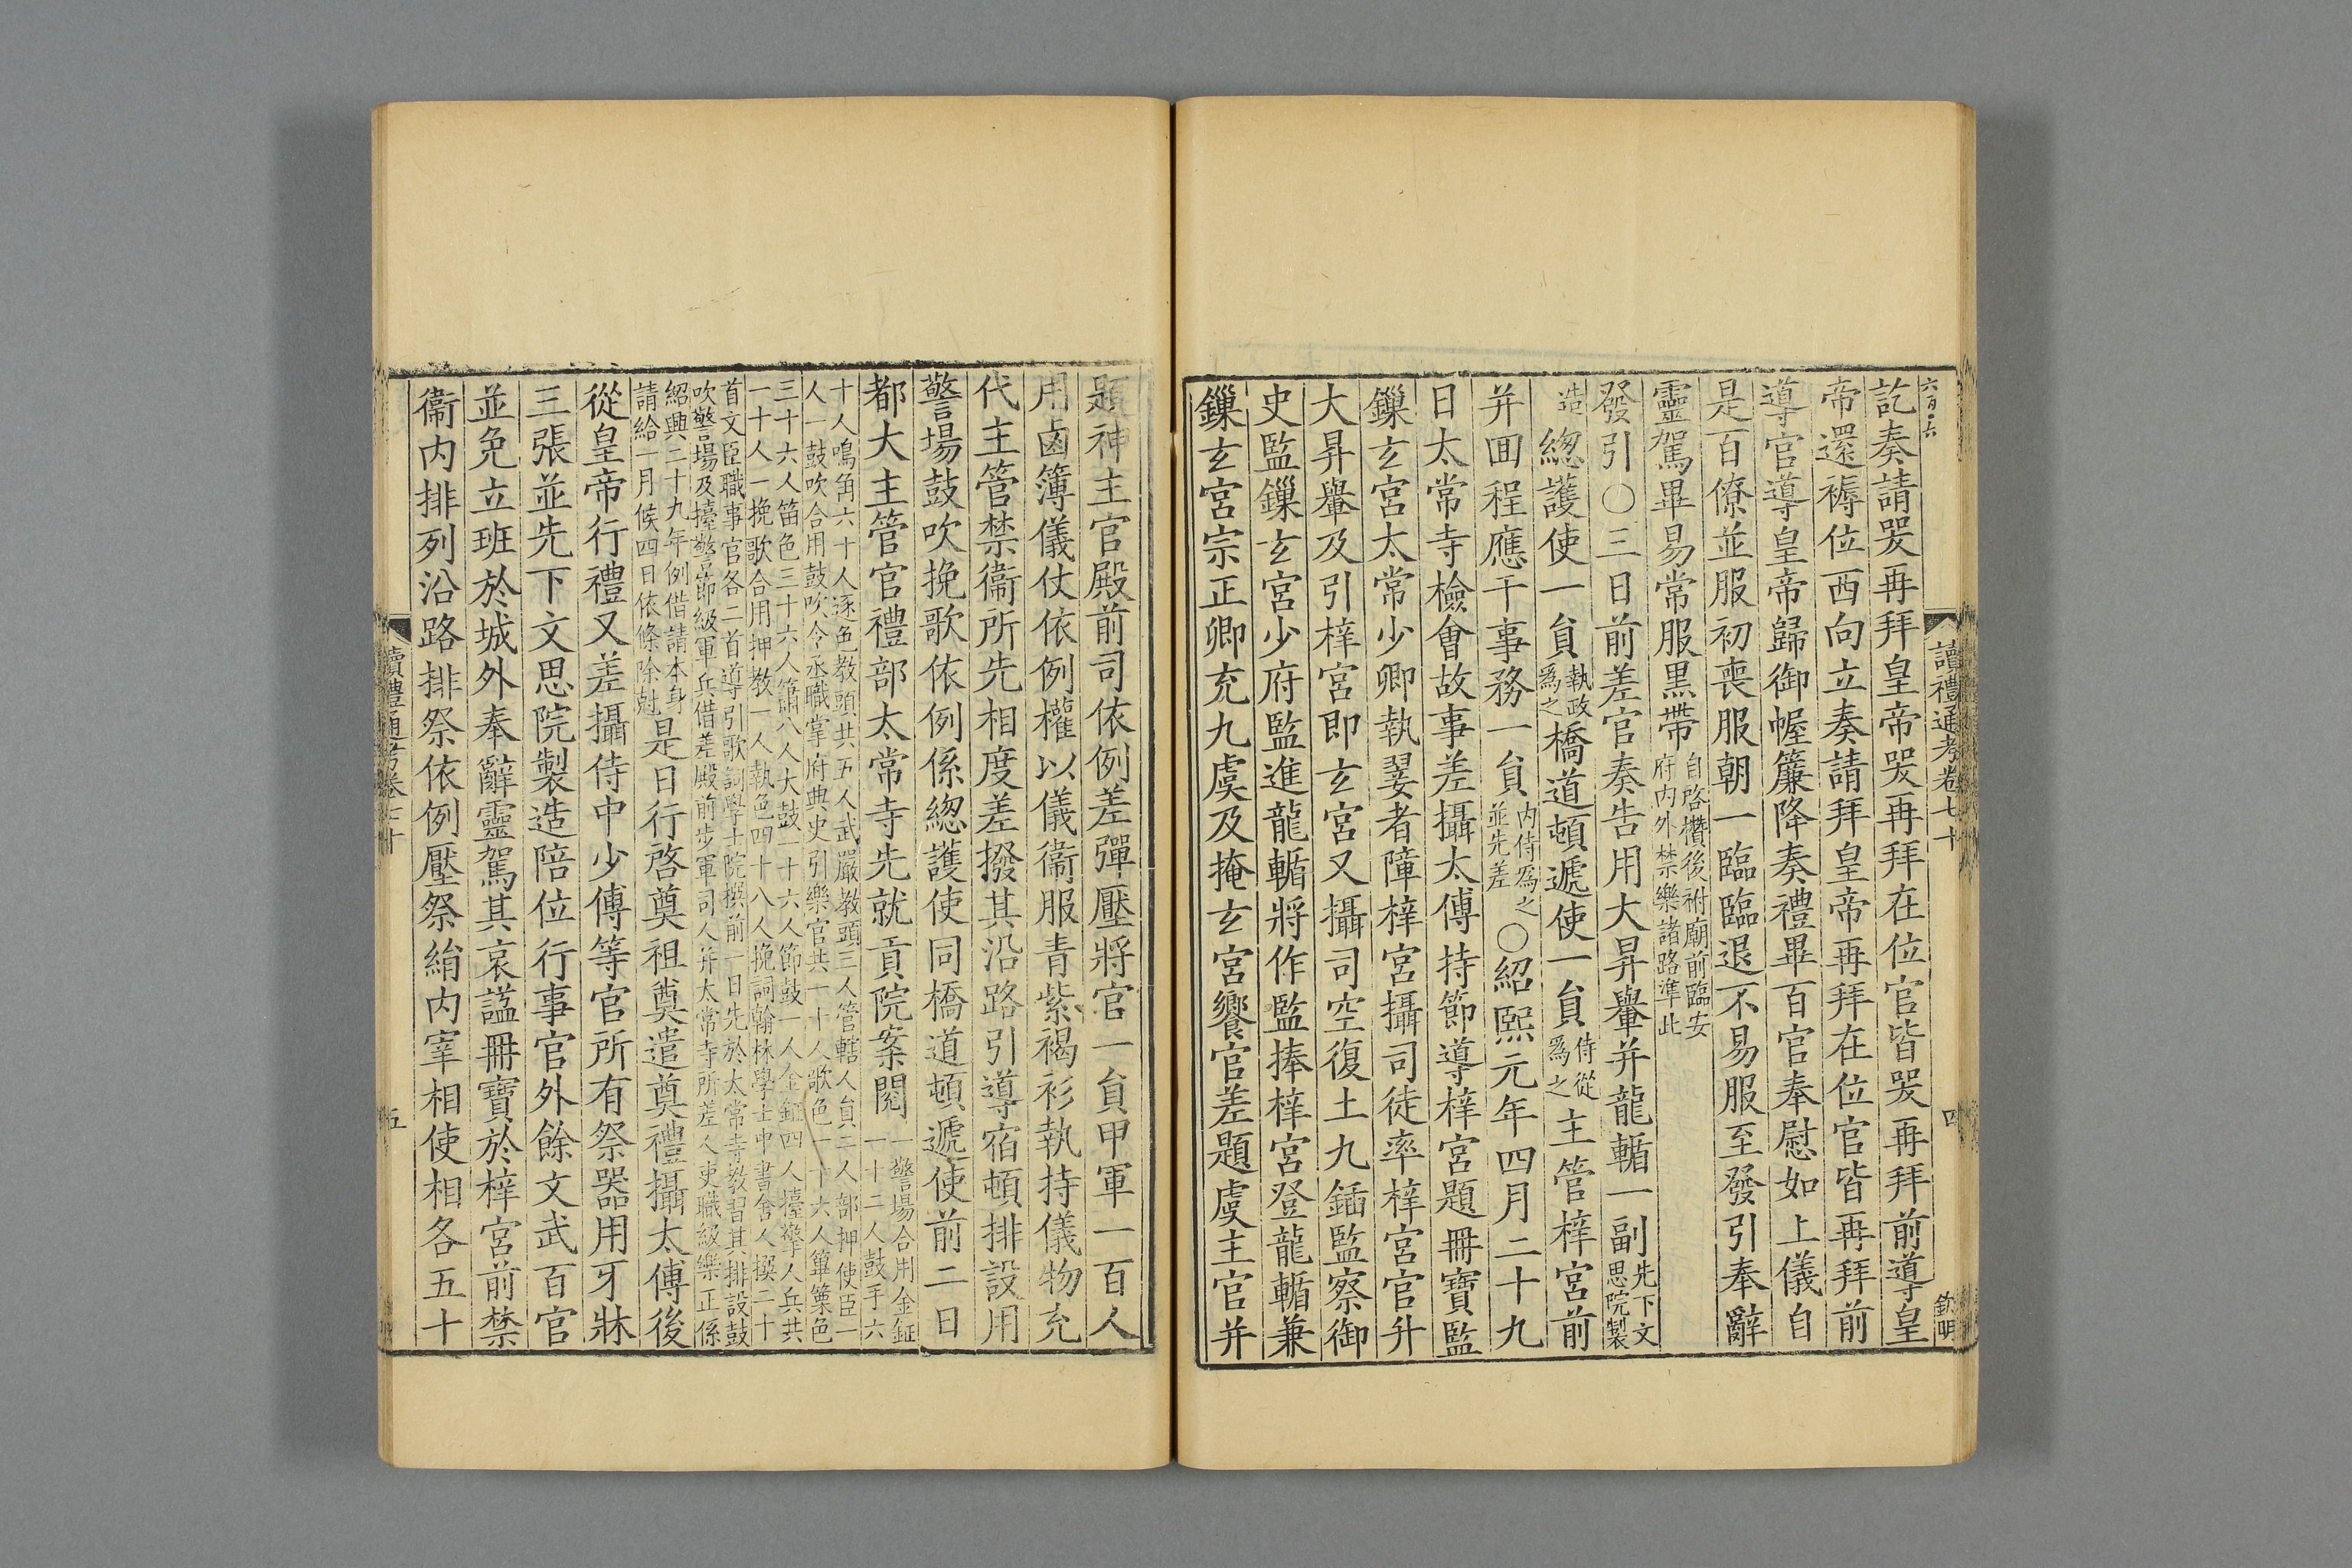 讀禮通考卷七十
四
欽明
訖奏請哭再拜皇帝哭再拜在位官皆哭再拜前導皇
帝還褥位西向立奏請拜皇帝再拜在位官皆再拜前
導官導皇帝歸御幄簾降奏禮畢百官奉慰如上儀自
是百僚並服初喪服朝一臨臨退不易服至發引奉辭
靈駕畢易常服黒帶自啓欑後祔廟前臨安府内外禁樂諸路準此
發引〇三日前差官奏告用大昇轝并龍輴一副先下文思院製
造總護使一員執政爲之橋道頓遞使一員侍從爲之主管梓宮前
并回程應干事務一員内侍爲之並先差〇紹熙元年四月二十九
日太常寺檢會故事差攝太傅持節導梓宮題冊寶監
鏁玄宮太常少卿執翣者障梓宮攝司徒率梓宮官升
大昇轝及引梓宮即玄宮又攝司空復土九鍤監察御
史監鏁玄宮少府監進龍輴將作監捧梓宮登龍輴兼
鏁玄宮宗正卿充九虞及掩玄宮饗官差題虞主官并
題神主官殿前司依例差彈壓將官一員甲軍一百人
用鹵簿儀仗依例權以儀衞服青紫褐衫執持儀物充
代主管禁衞所先相度差撥其沿路引導宿頓排設用
警場鼓吹挽歌依例係總護使同橋道頓遞使前二日
都大主管官禮部太常寺先就貢院案閱一警場合用金鉦一十二人鼓手六
十人鳴角六十人逐色教頭共五人武嚴教頭三人管轄人員二人部押使臣一
人一鼓吹合用鼓吹令丞職掌府典史引樂官共一十人歌色一十六人篳篥色
三十六人笛色三十六人簫八人大鼓一十六人節鼓一人金鉦四人擡擎人兵共
一十人一挽歌合用押教一人執色四十八人挽詞翰林學士中書舍人撰二十
首文臣職事官各二首導引歌詞學士院撰前一日先於太常寺教習其排設鼓
吹警場及擡擎節級軍兵借差殿前步軍司人并太常寺所差人吏職級樂正係
紹興二十九年例借請本身
請給一月候四日依條除尅是日行啓奠祖奠遣奠禮攝太傅後
從皇帝行禮又差攝侍中少傅等官所有祭器用牙牀
三張並先下文思院製造陪位行事官外餘文武百官
並免立班於城外奉辭靈駕其哀謚冊寶於梓宮前禁
衞内排列沿路排祭依例壓祭絹内宰相使相各五十
讀禮通考卷七十
五